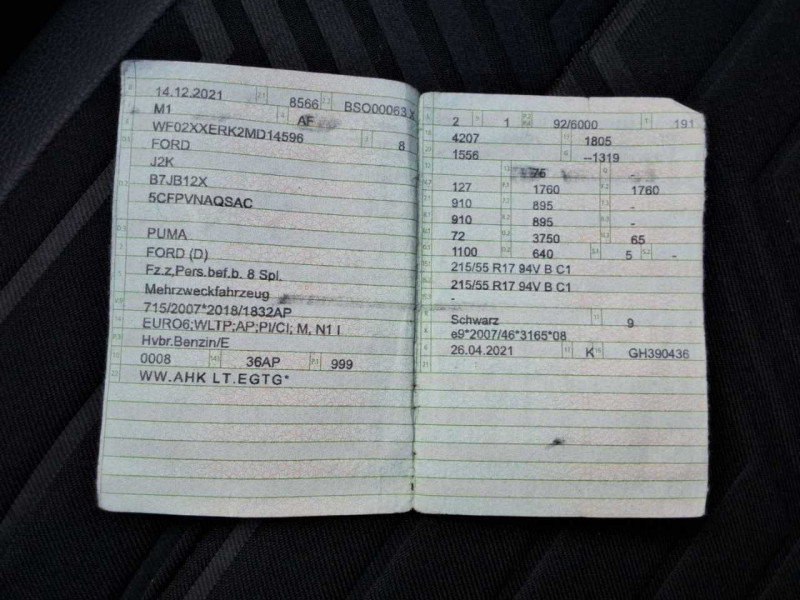 14.12.2021 8566 BSO00063 X
M1 AF
WF02XXERK2MD14596 8
FORD
J2K
B7JB12X
5CFPVNAQSAC
PUMA
FORD (D)
Fz.z,Pers.bef.b. 8 Spl.
Mehrzweckfahrzeug
715/2007*2018/1832AP
EURO6;WLTP;AP;PI/CI; M, N1 I
Hvbr.Benzin/E
0008 36AP 999
WW.AHK LT.EGTG*
2 1 92/6000 191
4207 1805
1556 --1319
76 - -
127 1760 1760
910 895 -
910 895 -
72 3750 65
1100 640 5 -
215/55 R17 94V B C1
215/55 R17 94V B C1
-
Schwarz 9
e9*2007/46*3165*08
26.04.2021 K GH390436